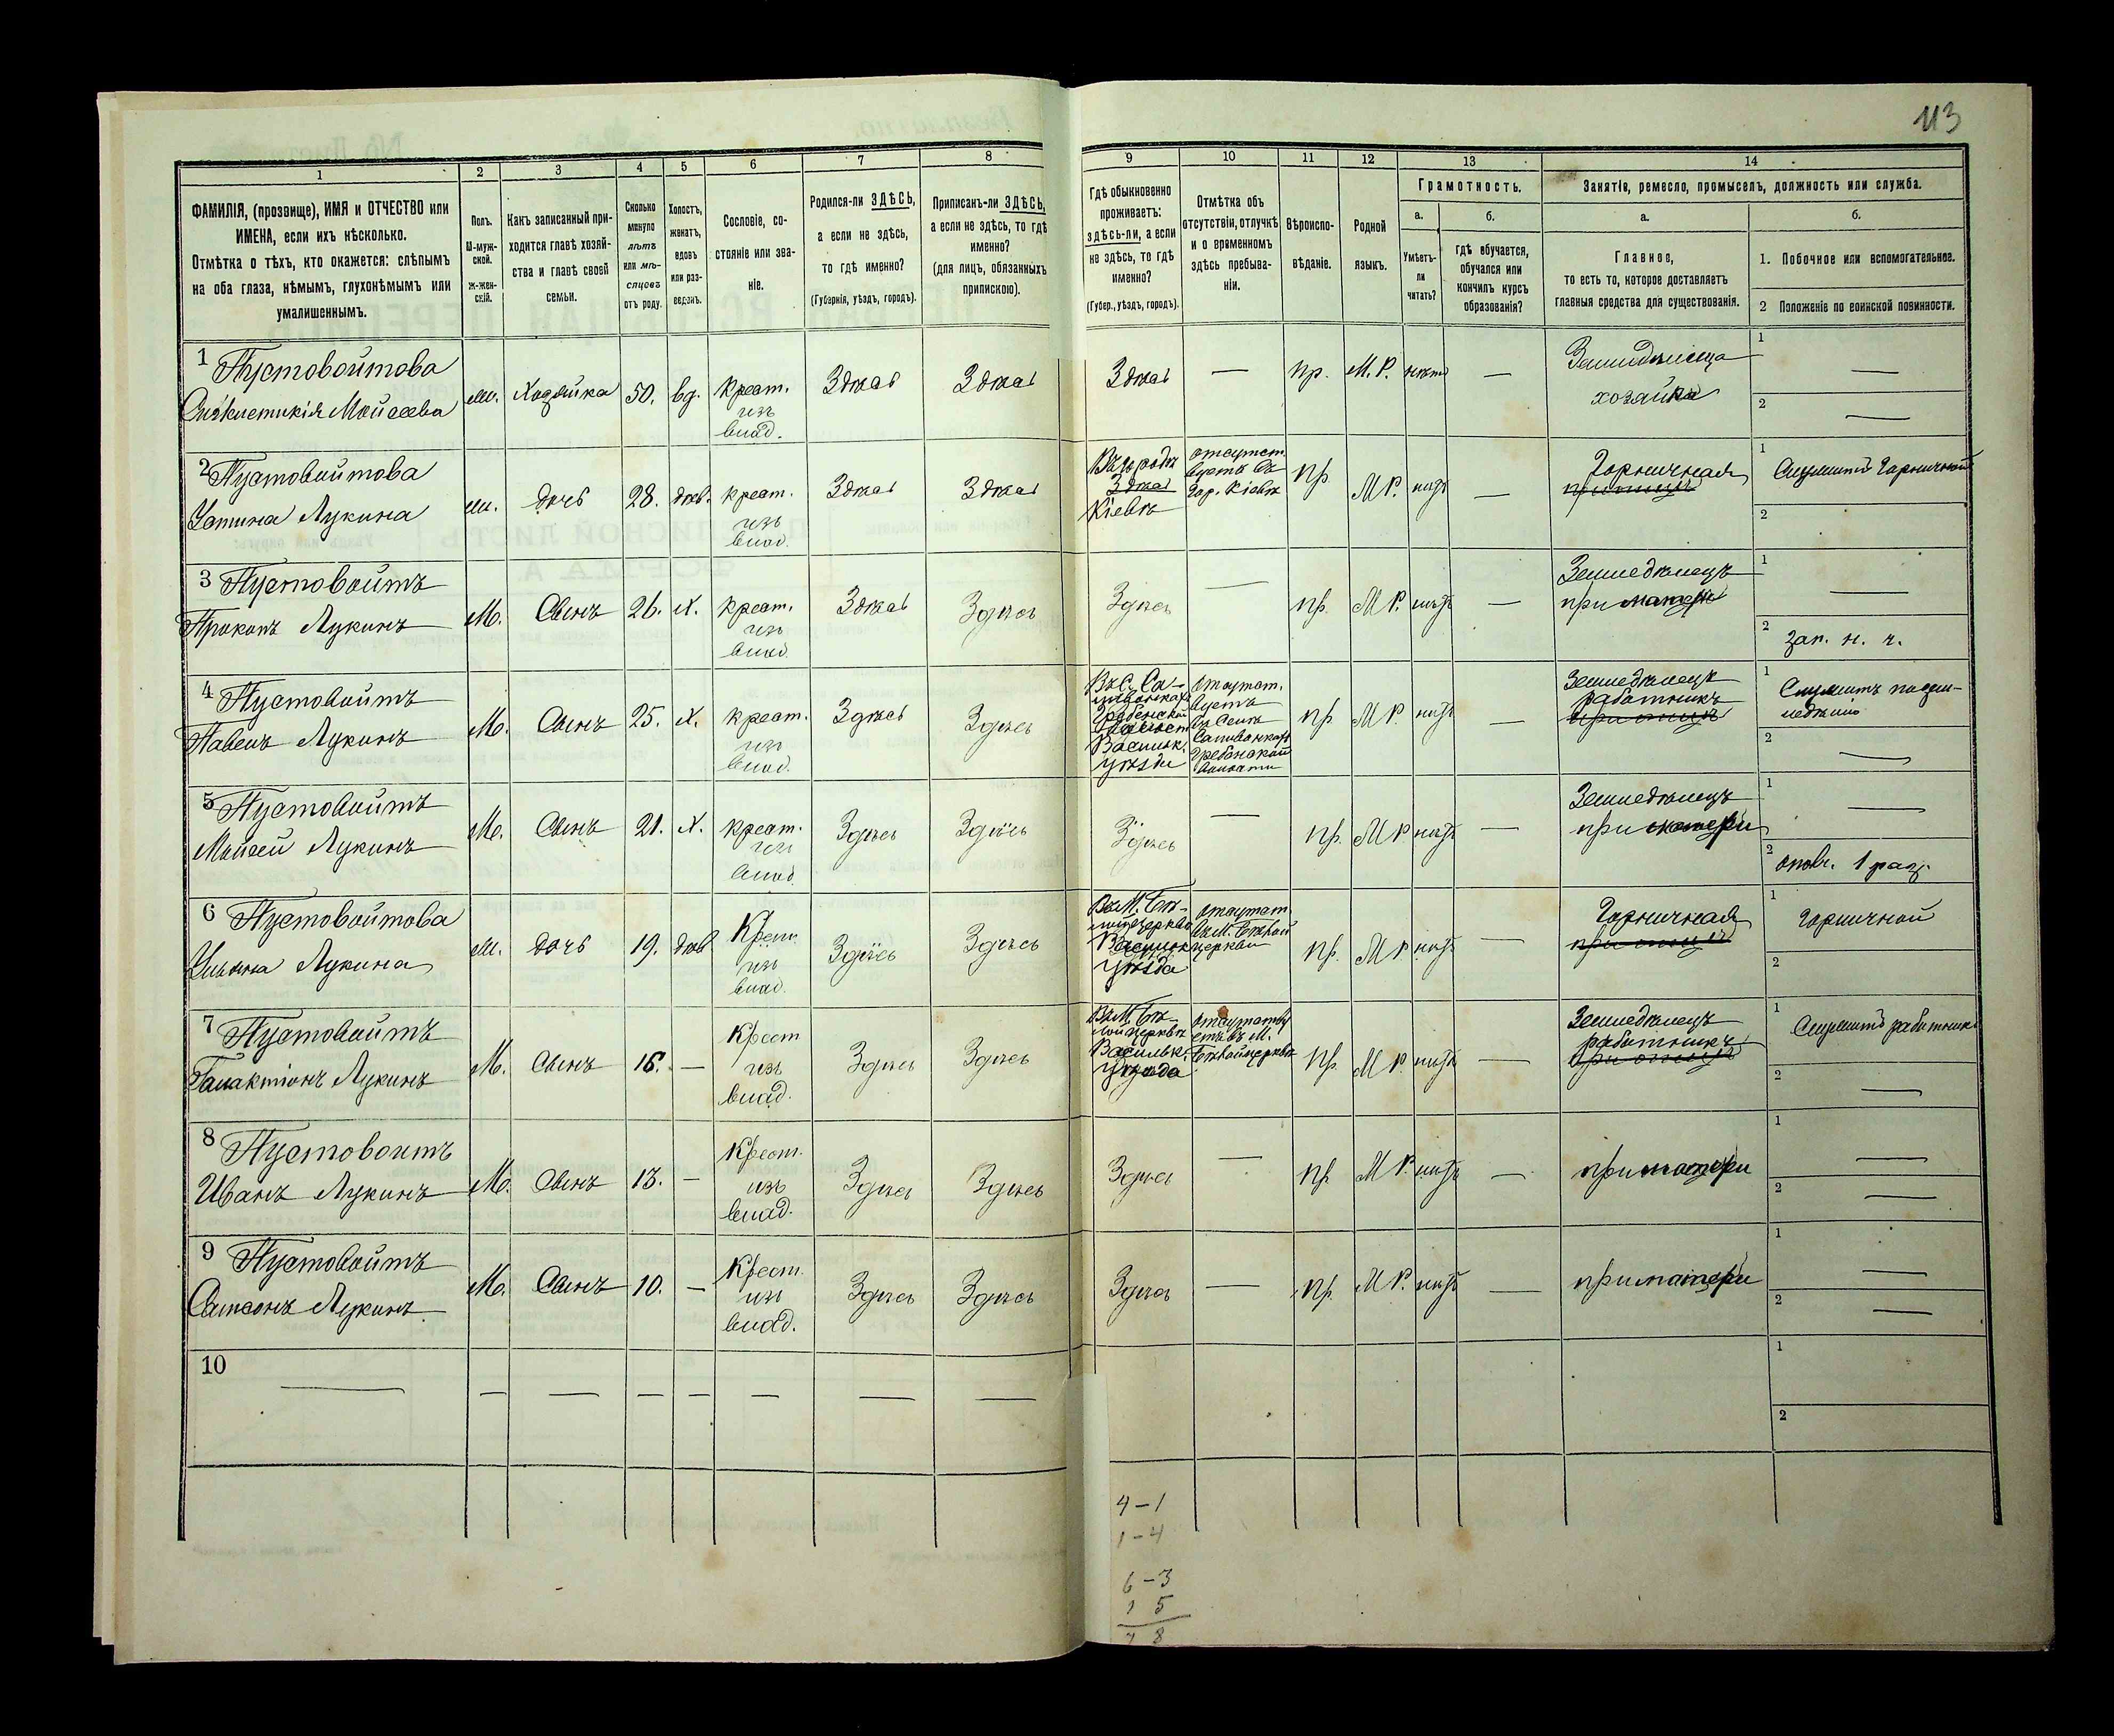 113
1
2
3
4
5
6
7
8
9
10
11
12
13
14
ФАМИЛІЯ, (прозвище), ИМЯ и ОТЧЕСТВО или
ИМЕНА, если ихъ нѣсколько.
Отмѣтка о тѣхъ, кто окажется: слѣпымъ
на оба глаза, нѣмымъ, глухонѣмымъ или
умалишеннымъ.
Полъ.
М-муж-
ской.
Ж-жен-
скій.
Какъ записанный при-
ходится главѣ хозяй-
ства и главѣ своей
семьи.
Сколько
минуло
лѣтъ
или мѣ-
сяцовъ
отъ роду.
Холостъ,
женатъ,
вдовъ
или раз-
веденъ.
Сословіе, со-
стояніе или зва-
ніе.
Родился-ли ЗДѢСЬ,
а если не здѣсь,
то гдѣ именно?
(Губернія, уѣздъ, городъ).
Приписанъ-ли ЗДѢСЬ,
а если не здѣсь, то гдѣ
именно?
(для лицъ, обязанныхъ
припискою).
Гдѣ обыкновенно
проживаетъ:
здѣсь-ли, а если
не здѣсь, то гдѣ
именно?
(Губер., уѣздъ, городъ).
Отмѣтка объ
отсутствіи, отлучкѣ
и о временномъ
здѣсь пребыва-
ніи.
Вѣроиспо-
вѣданіе.
Родной
языкъ.
Грамотность.
а.
Умѣетъ-
ли
читать?
б.
гдѣ обучается,
обучался или
кончилъ курсъ
образованія?
Занятіе, ремесло, промыселъ, должность или служба.
а.
Главное,
то есть то, которое доставляетъ
главныя средства для существованія.
б.
1. Побочное или вспомогательное.
2 Положеніе по воинской повинности.
1 Пустовойтова
Моисеева
Хозяйка 50. вд. Крест.
изъ
влад.
Здѣсь Здѣсь
Здѣсь — пр. М.Р. нѣтъ —
Земледѣлица
хозяйка
1 —
2 —
2 Пустовойтова
Лукина
дочь 28. дѣв. крест.
изъ
влад.
Здѣсь Здѣсь
Въ городѣ
Здѣсь
Кіевѣ
отсутст
вуетъ въ
гор. Кіевѣ
пр М Р. нѣтъ —
Горничная
1 Служитъ Горничной
2
3 Пустовойтъ
Прокопъ Лукинъ
М. Сынъ 26. Х. крест.
изъ
влад.
Здѣсь Здѣсь
Здѣсь — пр. М Р. нѣтъ —
Земледѣлецъ
при матери
1 —
2 зап. н. ч.
4 Пустовойтъ
Павелъ Лукинъ
М. Сынъ 25. Х. крест.
изъ
влад.
Здѣсь Здѣсь
Васильк.
уѣзда
отсутст.
вуетъ
въ Селѣ
Саливонкахъ
Гребенской
волости
пр М Р нѣтъ —
Земледѣлецъ
работникъ
1
2 —
5 Пустовойтъ
Моисей Лукинъ
М. Сынъ 21. Х. крест.
изъ
влад.
Здѣсь Здѣсь
Здѣсь — пр. М Р нѣтъ —
Земледѣлецъ
при матери
1 —
2 ополч. 1 раз.
6 Пустовойтова
Ульяна Лукина
дочь 19. дѣв Крест.
изъ
влад.
Здѣсь Здѣсь
Въ М. Бѣ-
лой Церкви
Васильк
уѣзда
отсутст.
въ М. Бѣлой
церкви
пр. М Р нѣтъ —
Горничная
1 Горничной
2
7 Пустовойтъ
Галактіонъ Лукинъ
М. Сынъ 16. — Крест
изъ
влад.
Здѣсь Здѣсь
Въ М. Бѣ-
лой церквѣ
Васильк.
уѣзда
отсутству
етъ въ М.
Бѣлой церквѣ
пр. М Р нѣтъ —
Земледѣлецъ
работникъ
1 Служитъ работником
2 —
8 Пустовоитъ
Иванъ Лукинъ
М. Сынъ 13. — Крест.
изъ
влад.
Здѣсь Здѣсь
Здѣсь — пр М Р. нѣтъ —
при матери
1 —
2 —
9 Пустовойтъ
Самсонъ Лукинъ
М. Сынъ 10. — Крест.
изъ
влад.
Здѣсь Здѣсь
Здѣсь — пр. М Р. нѣтъ —
при матери
1 —
2 —
10
— — — — — — — —
1
2
4 – 1
1 – 4
6 – 3
1 5
7 8